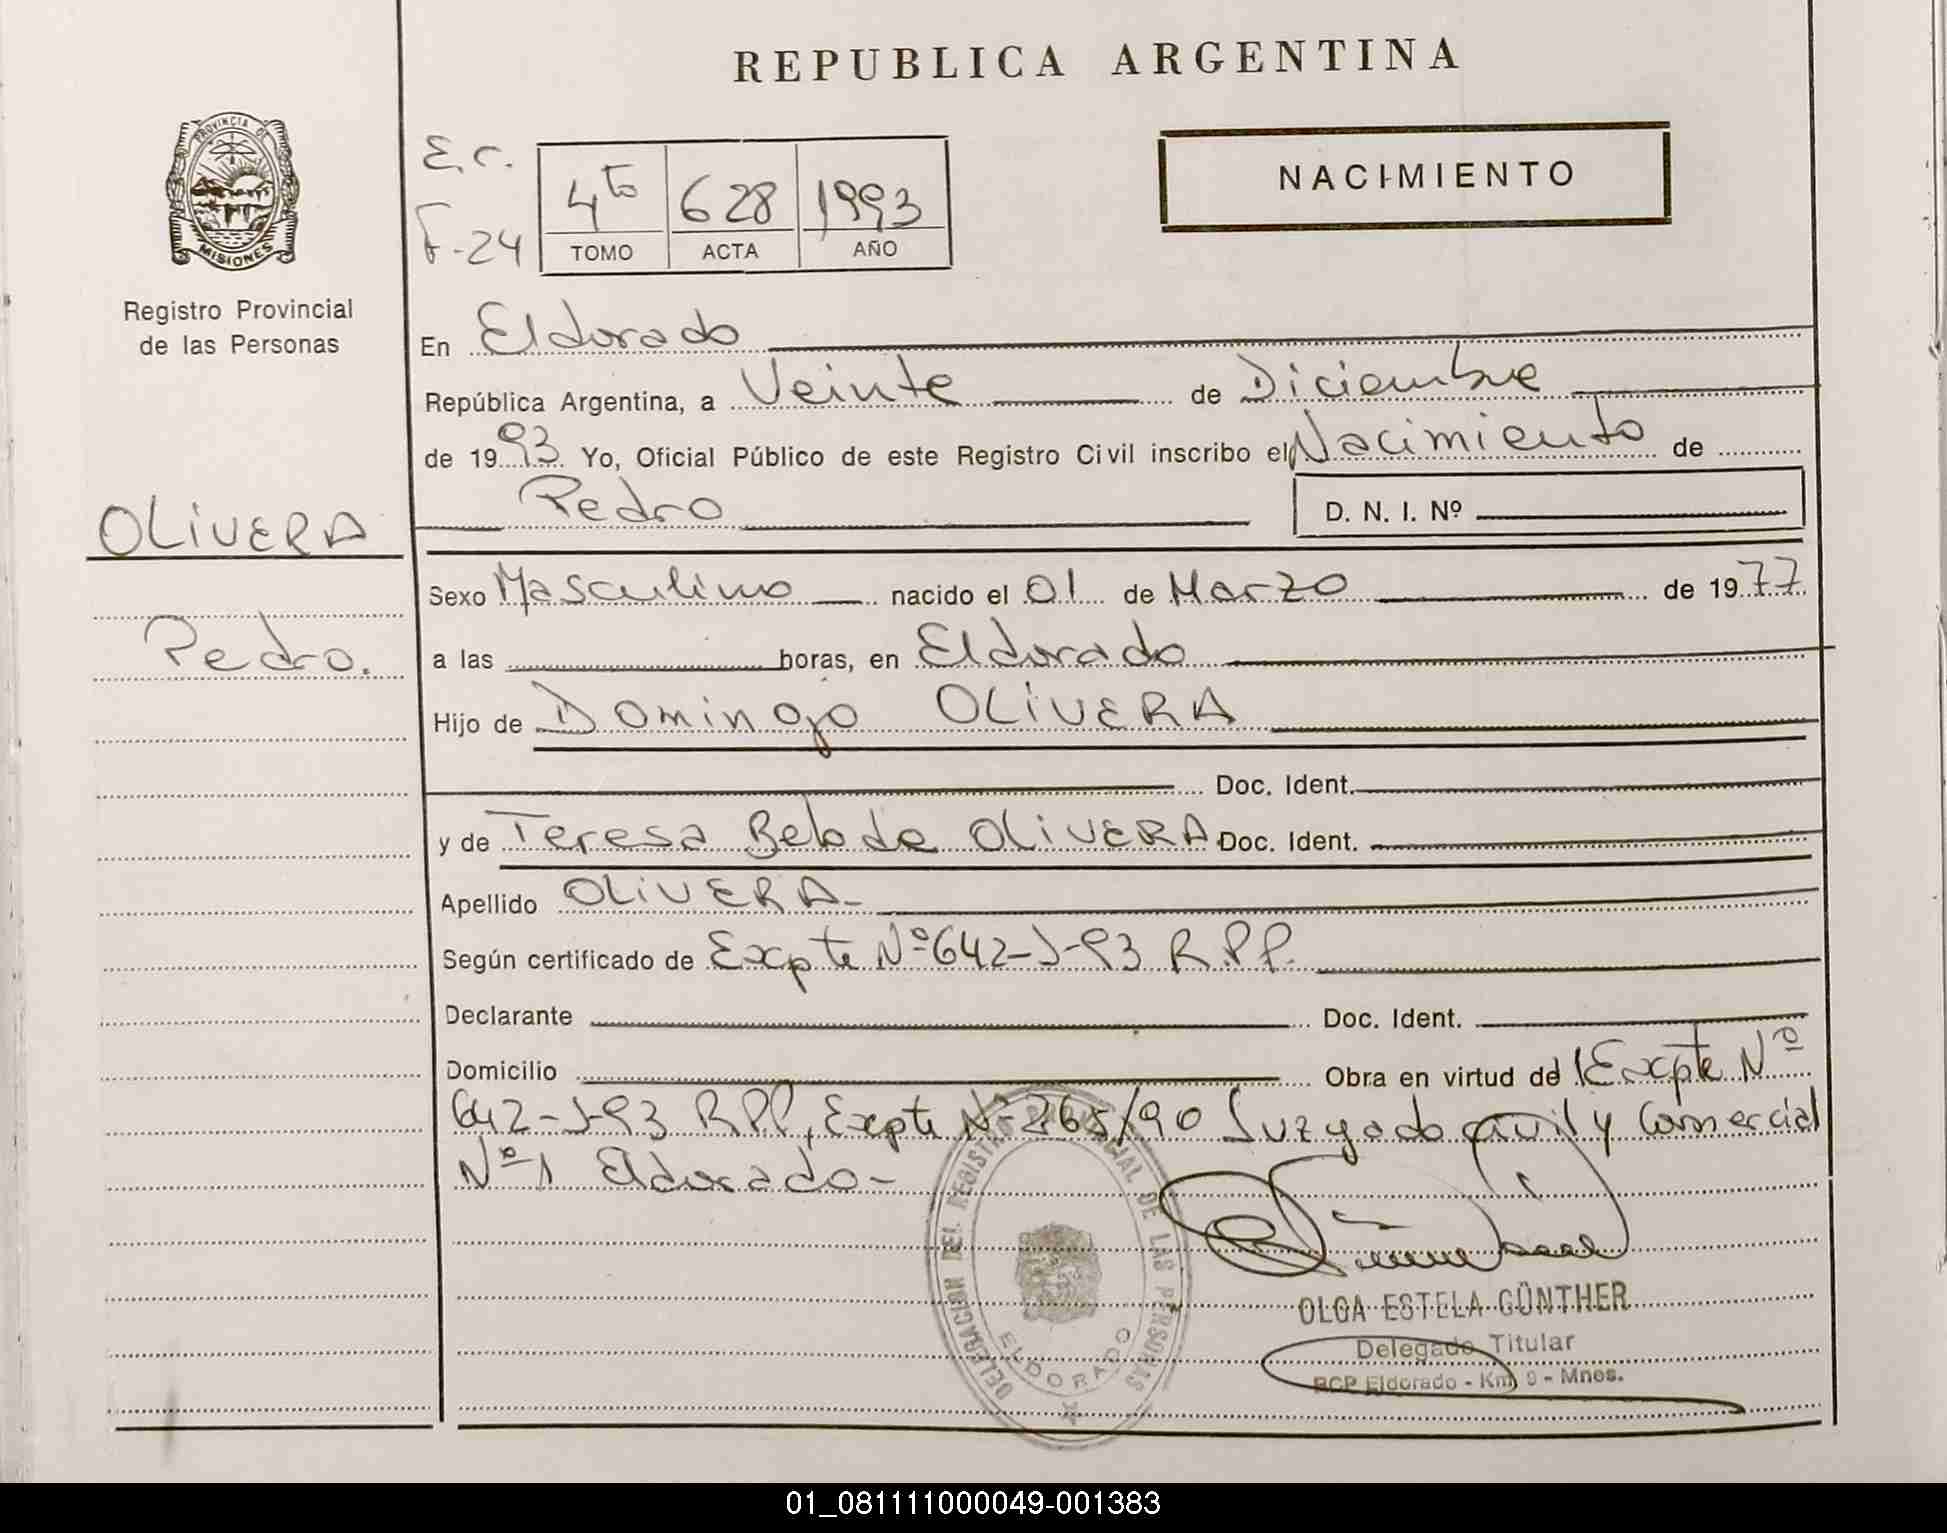 REPUBLICA ARGENTINA
PROVINCIA DE
MISIONES
Registro Provincial
de las Personas
E.C.
F-24
4to 628 1993
TOMO ACTA AÑO
NACIMIENTO
En Eldorado
República Argentina, a Veinte de Diciembre
de 1993 Yo, Oficial Público de este Registro Civil inscribo el Nacimiento de
Pedro D. N. I. Nº
OLIVERA
Pedro.
Sexo Masculino nacido el 01 de Marzo de 1977
a las horas, en Eldorado
Hijo de Domingo OLIVERA
Doc. Ident.
y de Teresa Belo de OLIVERA Doc. Ident.
Apellido OLIVERA-
Según certificado de Expte Nº 642-J-93 R.P.P.
Declarante Doc. Ident.
Domicilio Obra en virtud del Expte Nº
642-J-93 RPP, Expte Nº 265/90 Juzgado Civil y Comercial
Nº 1 Eldorado-
DELEGACION DEL REGISTRO PROVINCIAL DE LAS PERSONAS
ELDORADO
OLGA ESTELA GÜNTHER
Delegado Titular
RCP Eldorado - Km 9 - Mnes.
01_081111000049-001383